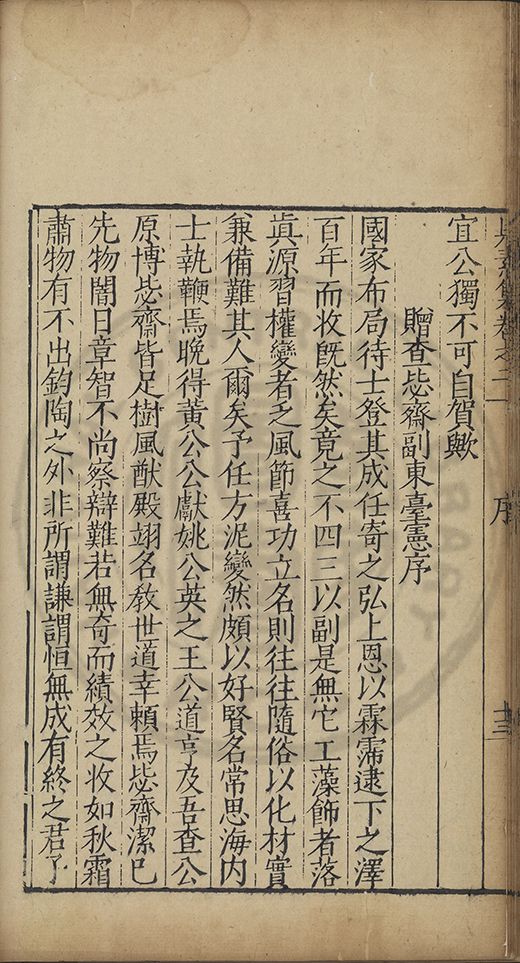 集卷之二 序 十三
宜公獨不可自賀歟
贈查毖齋副東臺憲序
國家布局待士登其成任寄之弘上恩以霖霈逮下之澤
百年而收旣然矣竟之不四三以副是無它工藻飾者落
眞源習權變者乏風節喜功立名則往往隨俗以化材實
兼備難其人爾矣予任方泥變然頗以好賢名常思海内
士執鞭焉晩得黃公公獻姚公英之王公道亨及吾查公
原博毖齋皆足樹風猷殿翊名敎世道幸賴焉毖齋潔巳
先物闇日章智不尚察辯難若無奇而績效之收如秋霜
肅物有不出鈞陶之外非所謂謙謂恒無成有終之君子